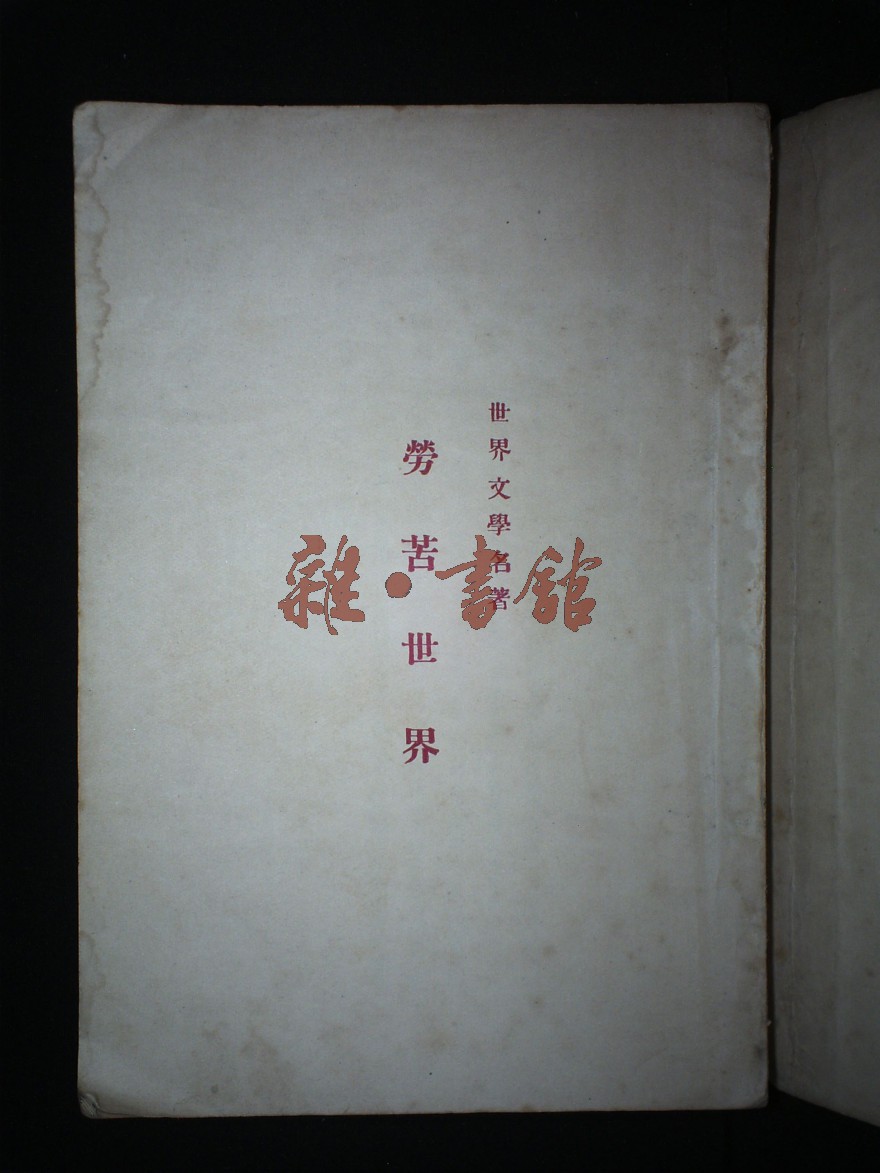 世界文學名著
勞苦世界
雜·書館